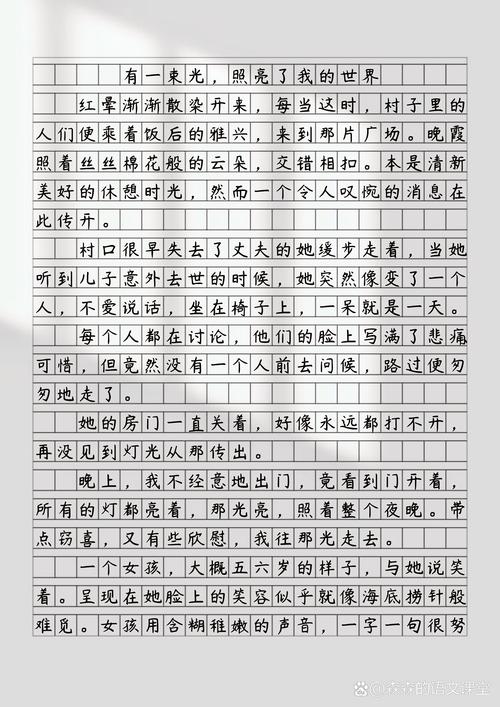 有一束光，照亮了我的世界
红晕渐渐散染开来，每当这时，村子里的
人们便乘着饭后的雅兴，来到那片广场。晚霞
照着丝丝棉花般的云朵，交错相扣。本是清新
美好的休憩时光，然而一个令人叹惋的消息在
此传开。
村口很早失去了丈夫的她缓步走着，当她
听到儿子意外去世的时候，她突然像变了一个
人，不爱说话，坐在椅子上，一呆就是一天。
每个人都在讨论，他们的脸上写满了悲痛
可惜，但竟然没有一个人前去问候，路过便匆
匆地走了。
她的房门一直关着，好像永远都打不开，
再没见到灯光从那传出。
晚上，我不经意地出门，竟看到门开着，
所有的灯都亮着，那光亮，照着整个夜晚。带
点窃喜，又有些欣慰，我往那光走去。
一个女孩，大概五六岁的样子，与她说笑
着。呈现在她脸上的笑容似乎就像海底捞针般
难觅。女孩用含糊稚嫩的声音，一字一句很努
森森的语文课堂